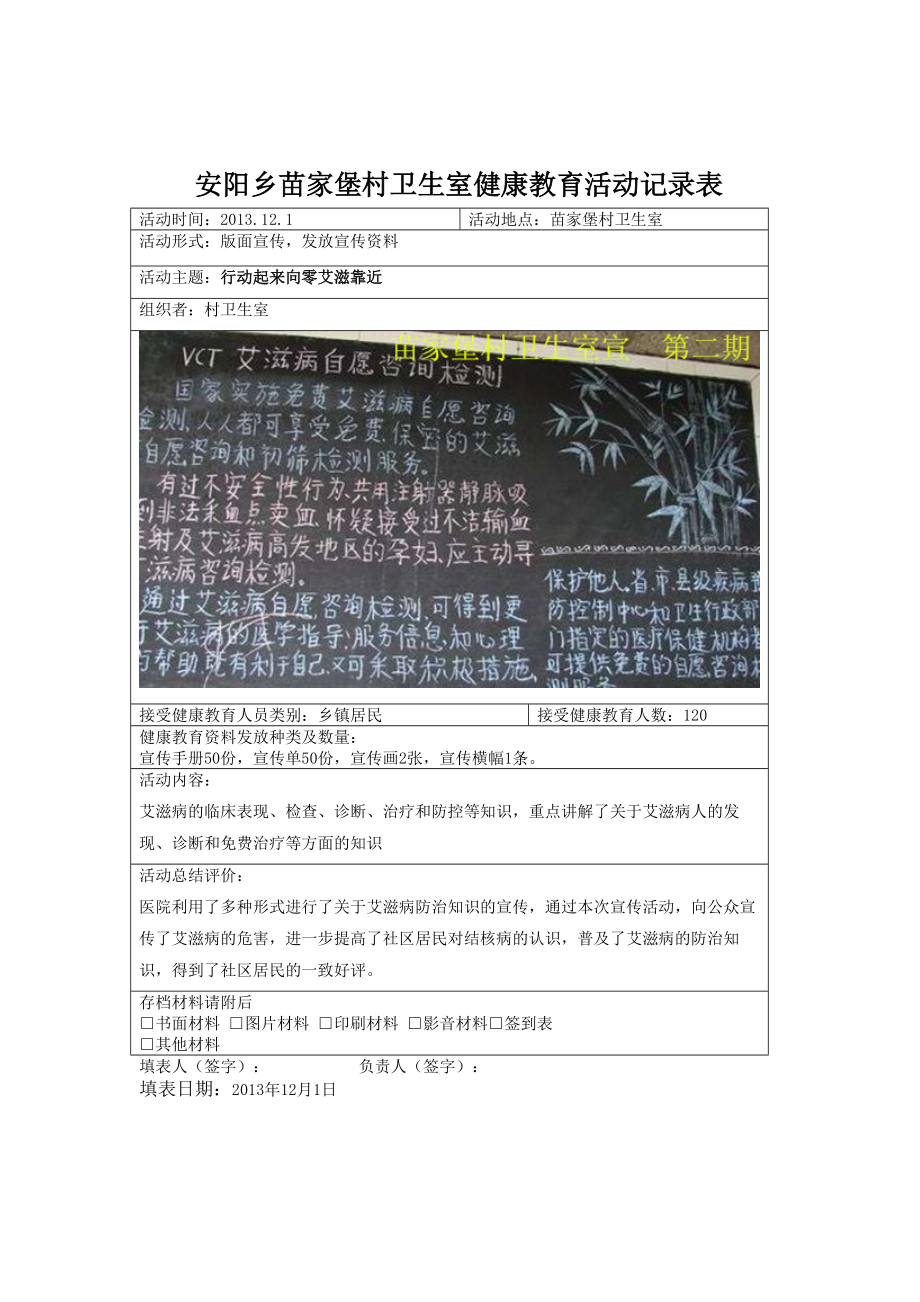 安阳乡苗家堡村卫生室健康教育活动记录表
活动时间：2013.12.1
活动地点：苗家堡村卫生室
活动形式：版面宣传，发放宣传资料
活动主题：行动起来向零艾滋靠近
组织者：村卫生室
苗家堡村卫生室宣　第二期
VCT 艾滋病自愿咨询检测
国家实施免费艾滋病自愿咨询
检测、人人都可享受免费、保密的艾滋
自愿咨询和初筛检测服务。
有过不安全性行为、共用注射器静脉吸
到非法采血点卖血、怀疑接受过不洁输血
注射及艾滋病高发地区的孕妇、应主动寻
滋病咨询检测。
通过艾滋病自愿咨询检测，可得到更
于艾滋病的医学指导、服务信息、和心理
与帮助，既有利于自己，又可采取积极措施，
保护他人。省、市、县级疾病预
防控制中心和卫生行政部
门指定的医疗保健机构
可提供免费的自愿咨询检
测服务
接受健康教育人员类别：乡镇居民
接受健康教育人数：120
健康教育资料发放种类及数量：
宣传手册50份，宣传单50份，宣传画2张，宣传横幅1条。
活动内容：
艾滋病的临床表现、检查、诊断、治疗和防控等知识，重点讲解了关于艾滋病人的发
现、诊断和免费治疗等方面的知识
活动总结评价：
医院利用了多种形式进行了关于艾滋病防治知识的宣传，通过本次宣传活动，向公众宣
传了艾滋病的危害，进一步提高了社区居民对结核病的认识，普及了艾滋病的防治知
识，得到了社区居民的一致好评。
存档材料请附后
□书面材料 □图片材料 □印刷材料 □影音材料□签到表
□其他材料
填表人（签字）：　　　　　　负责人（签字）：
填表日期：2013年12月1日